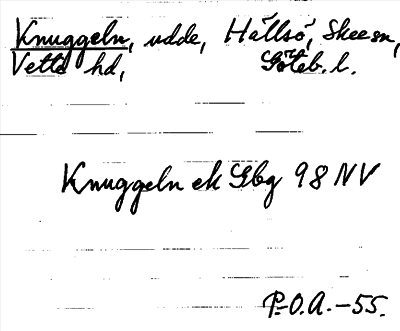 Knuggeln, udde, Hällsö, Skee sn,
Vette hd, Göteb. l.
Knuggeln ek Gbg 98 NV
P.-O.A. -55.